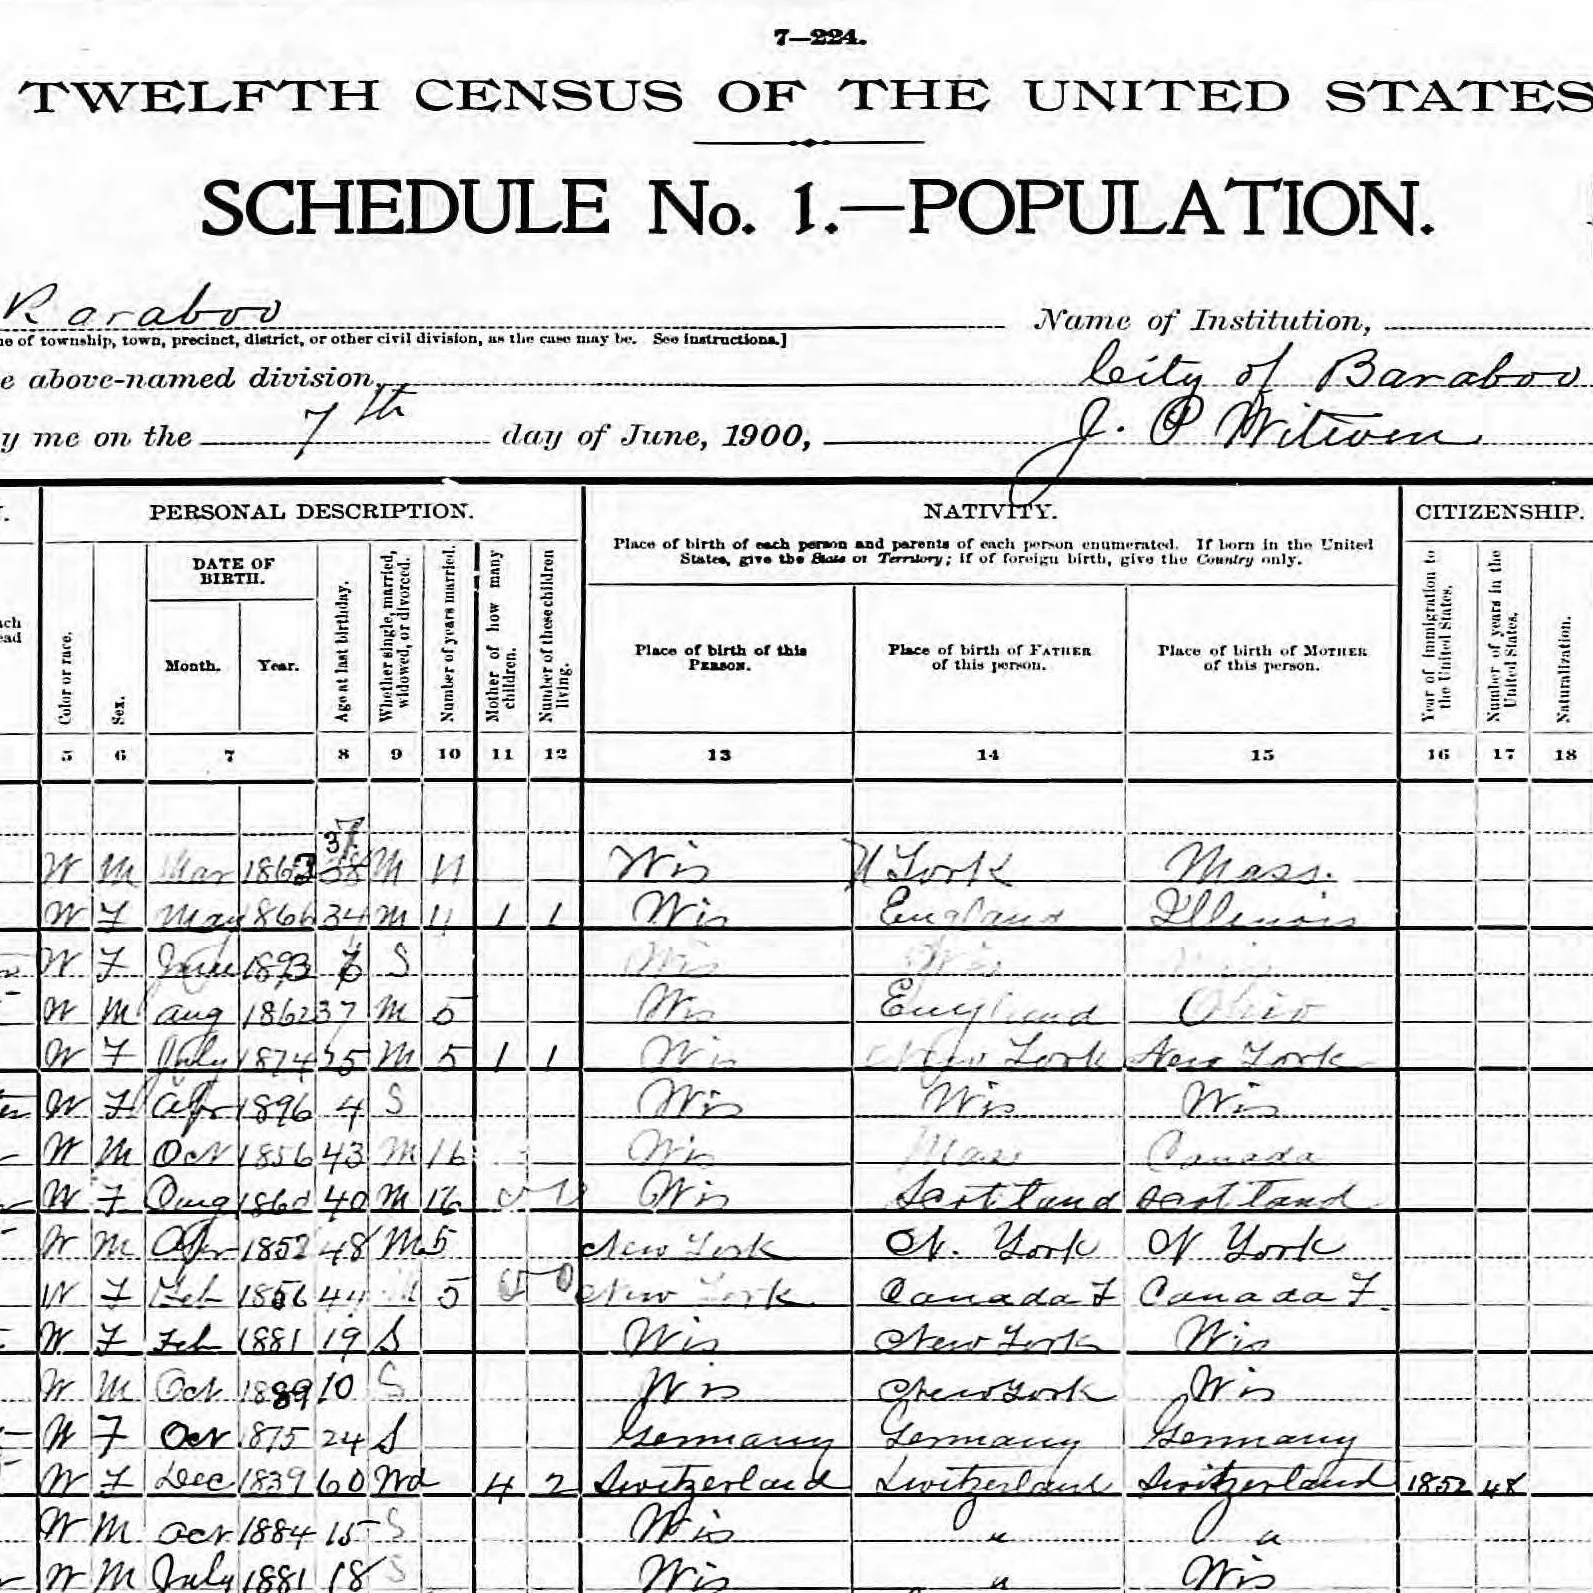 7—224.
TWELFTH CENSUS OF THE UNITED STATES
SCHEDULE No. 1.—POPULATION.
Baraboo Name of Institution,
ne of township, town, precinct, district, or other civil division, as the case may be. See instructions.]
e above-named division, City of Baraboo
y me on the 7th day of June, 1900, J. P Witwen
PERSONAL DESCRIPTION. NATIVITY. CITIZENSHIP.
Place of birth of each person and parents of each person enumerated. If born in the United
States, give the State or Territory; if of foreign birth, give the Country only.
ach
ead
Color or race.
Sex.
DATE OF
BIRTH.
Month. Year.
Age at last birthday.
Whether single, married,
widowed, or divorced.
Number of years married.
Mother of how many
children.
Number of these children
living.
Place of birth of this
PERSON.
Place of birth of FATHER
of this person.
Place of birth of MOTHER
of this person.
Year of immigration to
the United States.
Number of years in the
United States.
Naturalization.
5 6 7 8 9 10 11 12 13 14 15 16 17 18
37
W M Mar 1863 38 M 11 Wis N York Mass.
W F May 1866 34 M 11 1 1 Wis England Illinois
W F June 1893 S Wis Wis
W M Aug 1862 37 M 5 Wis England Ohio
W F July 1874 25 M 5 1 1 Wis New York New York
W F Apr 1896 4 S Wis Wis Wis
W M Oct 1856 43 M 16 Wis Mass Canada
W F Aug 1860 40 M 16 Wis Scotland Scotland
W M Apr 1852 48 M 5 New York N. York N York
W F Feb 1856 44 M 5 0 New York Canada F Canada F.
W F Feb 1881 19 S Wis New York Wis
W M Oct 1889 10 S Wis New York Wis
W F Oct 1875 24 S Germany Germany Germany
W F Dec 1839 60 Wd 4 2 Switzerland Switzerland Switzerland 1852 48
W M Oct 1884 15 S Wis " "
W M July 1881 18 S Wis " Wis